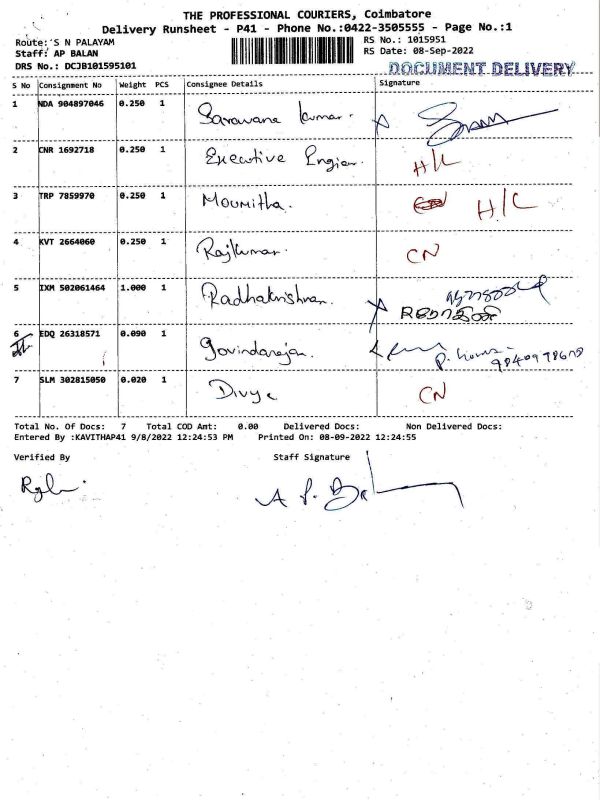 THE PROFESSIONAL COURIERS, Coimbatore
Delivery Runsheet - P41 - Phone No.:0422-3505555 - Page No.:1
Route: S N PALAYAM RS No.: 1015951
Staff: AP BALAN RS Date: 08-Sep-2022
DRS No.: DCJB101595101 DOCUMENT DELIVERY
S No Consignment No Weight PCS Consignee Details Signature
1 NDA 904897046 0.250 1 Saravana kumar.
2 CNR 1692718 0.250 1 Executive Engier. H/L
3 TRP 7859970 0.250 1 Moumitha. H/L
4 KVT 2664060 0.250 1 Rajkumar. CN
5 IXM 502061464 1.000 1 Radhakrishnan.
6 EDQ 26318571 0.090 1 Govindarajan.
7 SLM 302815050 0.020 1 Divya CN
Total No. Of Docs: 7 Total COD Amt: 0.00 Delivered Docs: Non Delivered Docs:
Entered By :KAVITHAP41 9/8/2022 12:24:53 PM Printed On: 08-09-2022 12:24:55
Verified By Staff Signature